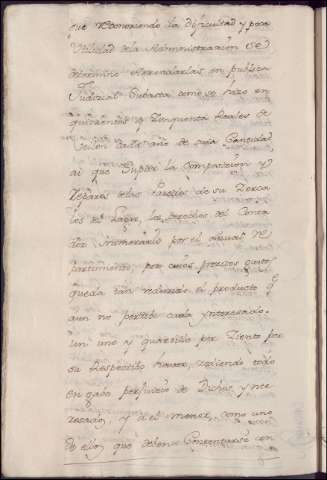 que reconociendo la dificultad y poca
Utilidad de la Administracion se
determinó Arrendarlas en publica
Judicial Subasta como se hizo en
quinientos y Zinquenta Reales de
Vellon cada año de cuia Cantidad
ai que Suplir la Composicion y
Reparos de las Paredes de su Zerca
los el Lagar, los derechos del Conta
dor Numerario por el anual Re
partimiento, por cuios precisos gastos
queda tan reducido el producto q.e
aun no percibe cada ynteresado
un uno y quartillo por Ziento por
su Respectibo haver, zediendo todo
en grabe perjuicio de Dichos ynte
resados, y de el menor, como uno
de ellos, que deben Contentarse con